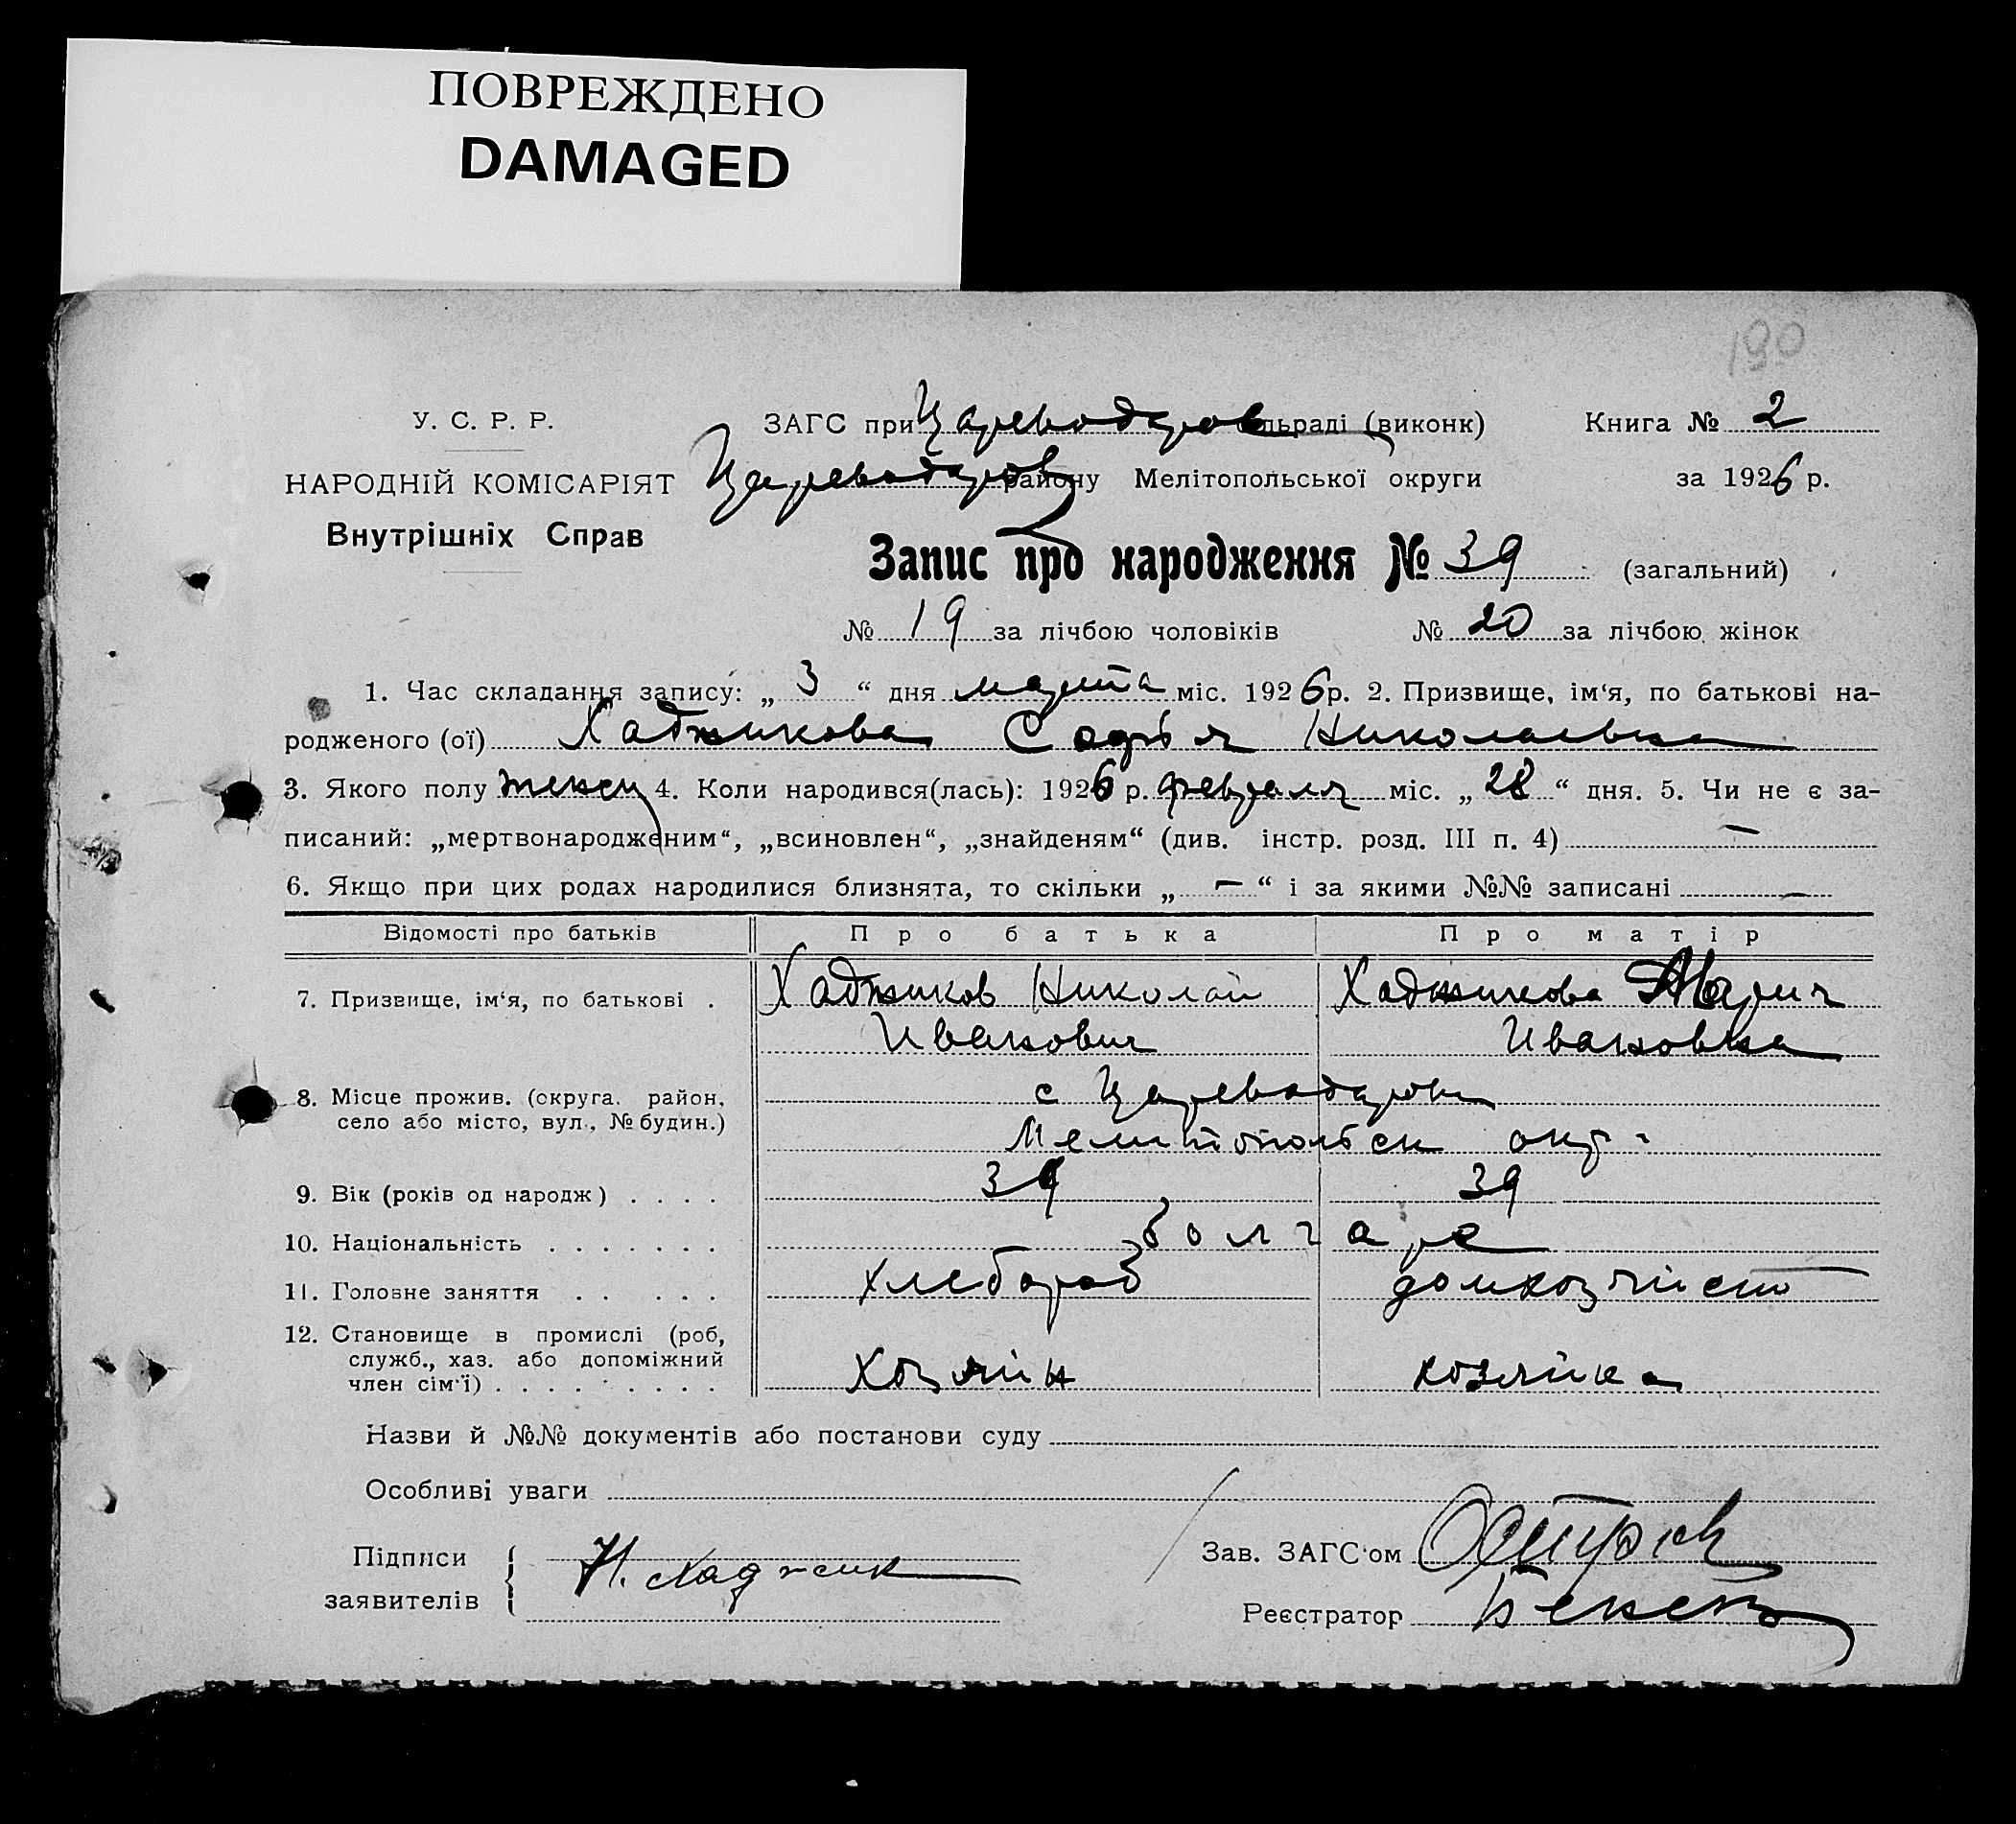 ПОВРЕЖДЕНО
DAMAGED
190
У. С. Р. Р.
НАРОДНІЙ КОМІСАРІЯТ
Внутрішніх Справ
ЗАГС при Цареводаров льраді (виконк)
Цареводаров району Мелітопольської округи
Книга № 2
за 1926 р.
Запис про народження № 39 (загальний)
№ 19 за лічбою чоловіків № 20 за лічбою жінок
1. Час складання запису: „ 3 “ дня марта міс. 1926 р. 2. Призвище, ім‘я, по батькові на-
родженого (ої) Хаджикова Софья Николаевна
3. Якого полу женск 4. Коли народився(лась): 1926 р. февраля міс. „ 28 “ дня. 5. Чи не є за-
писаний: „мертвонародженим“, „всиновлен“, „знайденям“ (див. інстр. розд. III п. 4) —
6. Якщо при цих родах народилися близнята, то скільки „ — “ і за якими №№ записані —
Відомості про батьків Про батька Про матір
7. Призвище, ім‘я, по батькові . Хаджиков Николай Хаджикова Мария
Иванович Ивановна
8. Місце прожив. (округа, район, село або місто, вул., № будин.) с Цареводаровка
Мелитопольск окр.
9. Вік (років од народж) . . . . 39 39
10. Національність . . . . . . . болгаре
11. Головне заняття . . . . . хлебороб домхозяйство
12. Становище в промислі (роб,
служб., хаз. або допоміжний
член сім‘ї) . . . . . . . . . хозяин хозяйка
Назви й №№ документів або постанови суду
Особливі уваги
Підписи
заявителів
Н. Хаджик
Зав. ЗАГС‘ом
Реєстратор